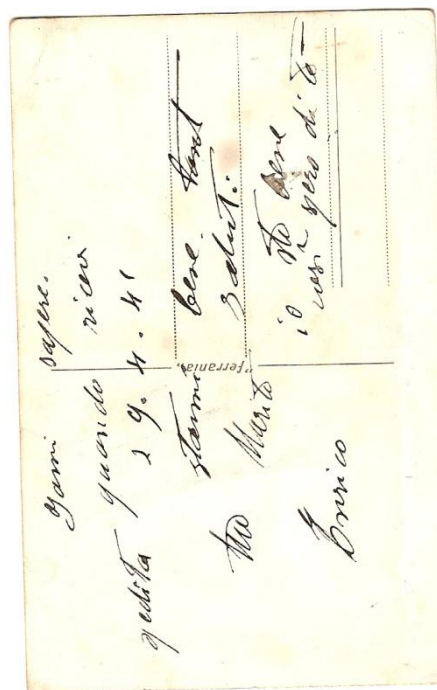 Fammi sapere.
quando ricevi
spedita 29. 4. 41
stammi bene. tant
saluti
tuo Marito
io sto bene
così spero di te —
Enrico
"Ferrania"